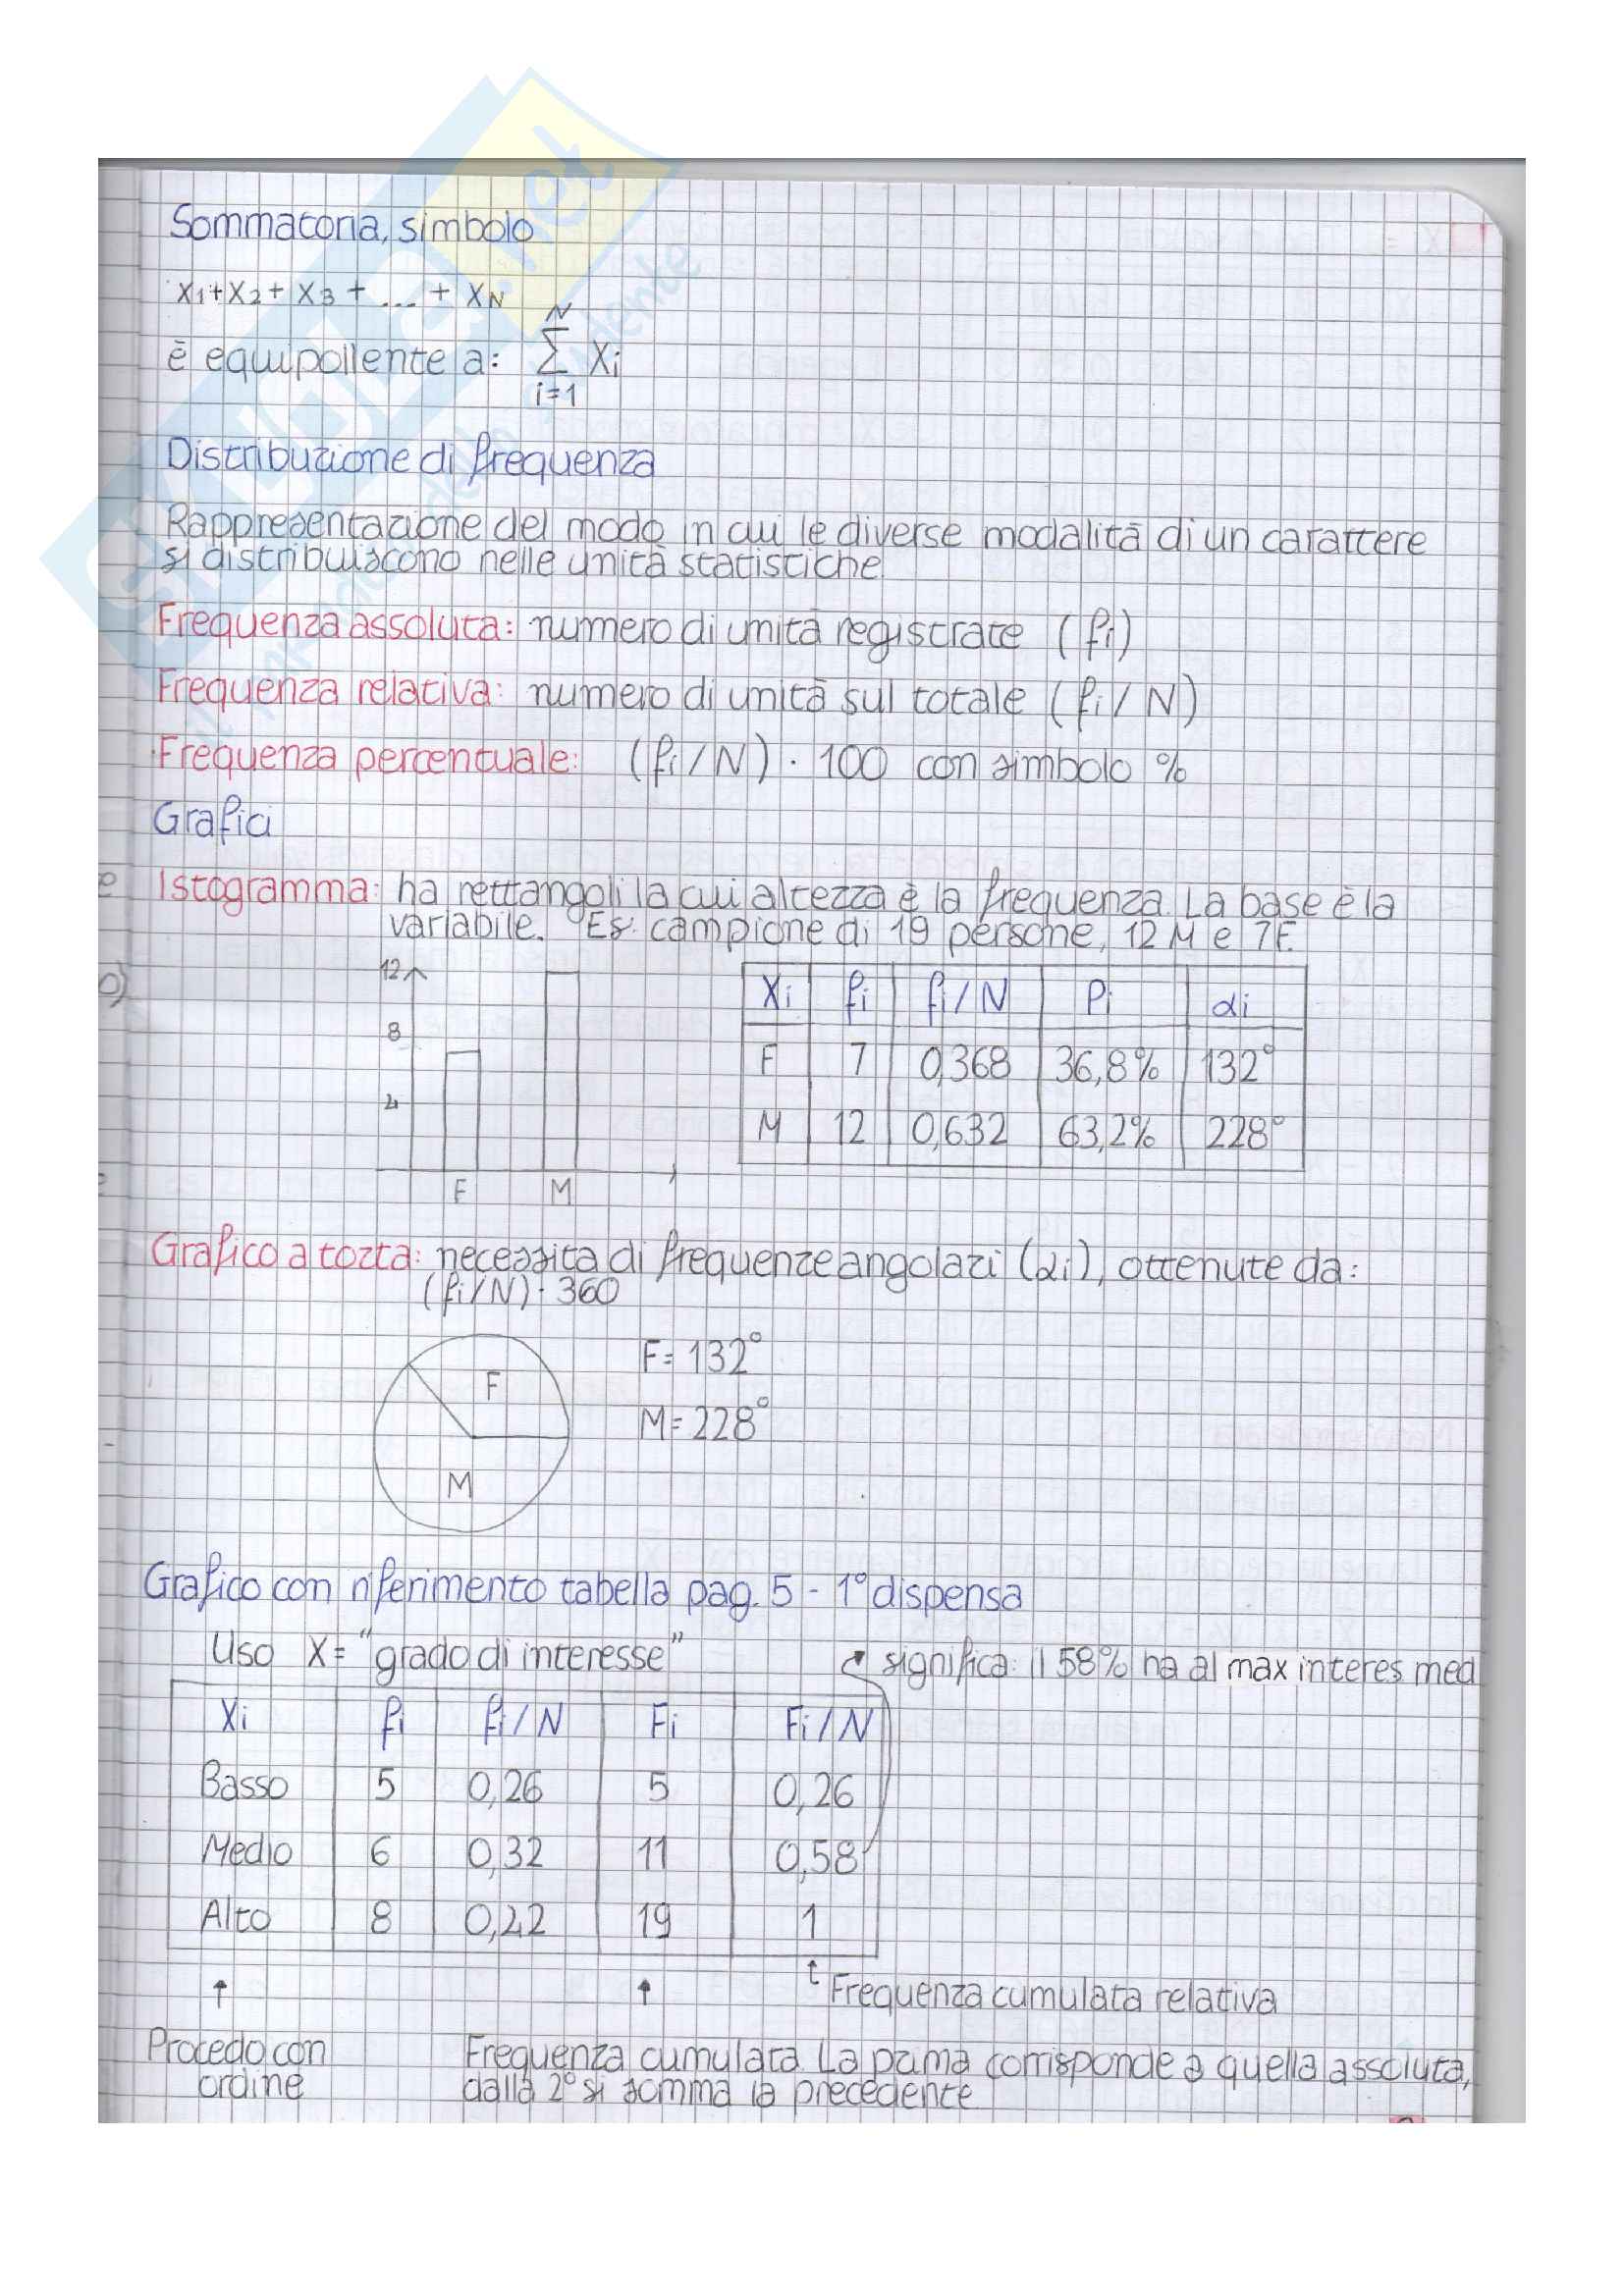 Sommatoria, simbolo
X1+X2+X3+...+XN
è equipollente a: N∑i=1 Xi
Distribuzione di frequenza
Rappresentazione del modo in cui le diverse modalità di un carattere
si distribuiscono nelle unità statistiche
Frequenza assoluta: numero di unità registrate (fi)
Frequenza relativa: numero di unità sul totale (fi/N)
Frequenza percentuale: (fi/N)·100 con simbolo %
Grafici
Istogramma: ha rettangoli la cui altezza è la frequenza. La base è la
variabile. Es. campione di 19 persone, 12 M e 7F.
12
8
4
F M
Xi fi fi/N Pi αi
F 7 0,368 36,8% 132°
M 12 0,632 63,2% 228°
Grafico a torta: necessita di frequenze angolari (αi), ottenute da:
(fi/N)·360
F
M
F=132°
M=228°
Grafico con riferimento tabella pag. 5 - 1° dispensa
Uso X= "grado di interesse"
significa: il 58% ha al max interes med
Xi fi fi/N Fi Fi/N
Basso 5 0,26 5 0,26
Medio 6 0,32 11 0,58
Alto 8 0,42 19 1
Frequenza cumulata relativa
Procedo con
ordine
Frequenza cumulata. La prima corrisponde a quella assoluta,
dalla 2° si somma la precedente